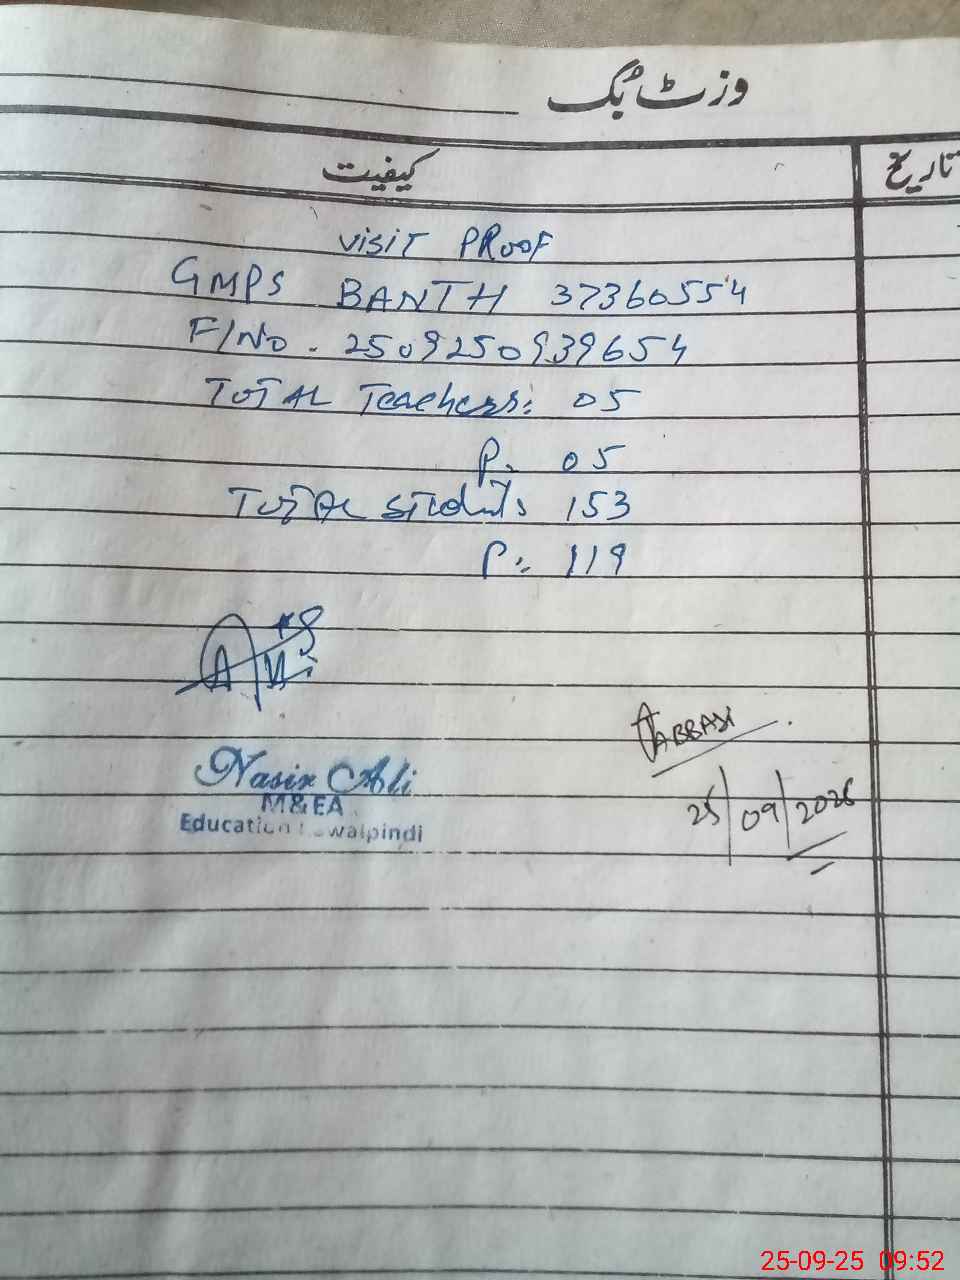 وزٹ بُک
تاریخ
کیفیت
Visit PRooF
GMPS BANTH 37360554
F/No. 2509250939654
TOTAL Teachers: 05
P. 05
TOTAL Students 153
P:. 119
Nasir Ali
M&EA
Education
ABBASI
25/09/2025
25-09-25 09:52